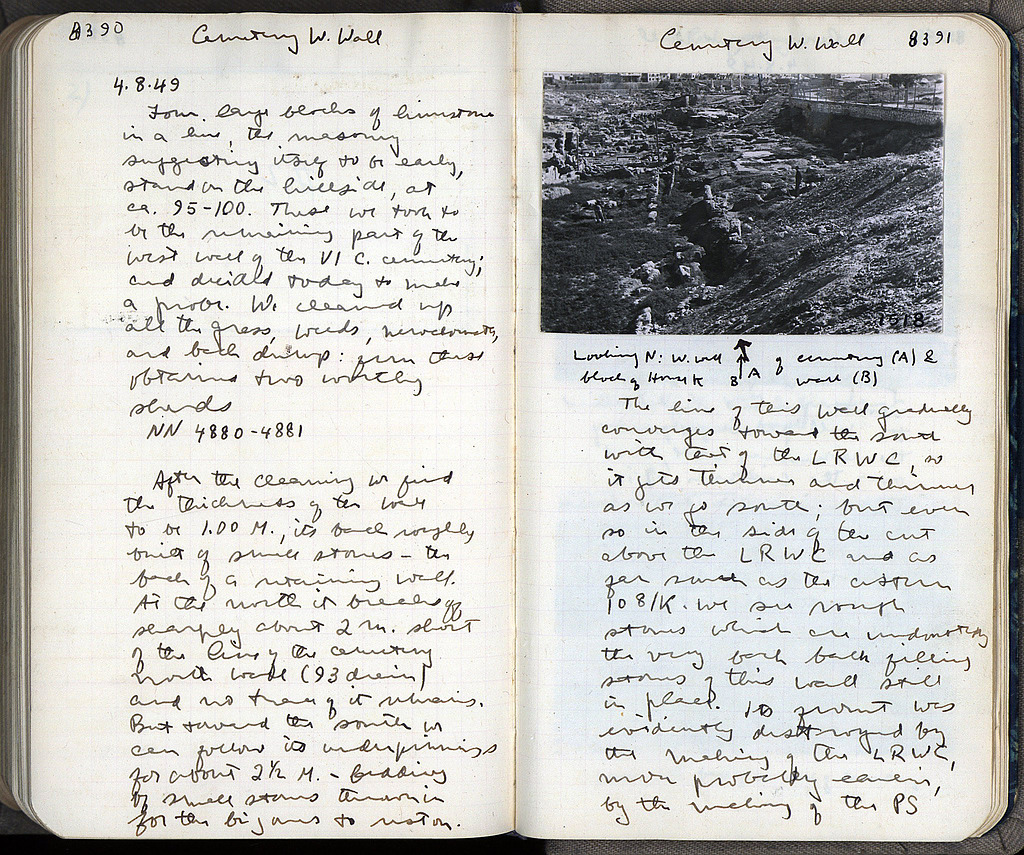 8390
Cemetery W. Wall
4.8.49
Four large blocks of limestone
in a line, the masonry
suggesting itself to be early,
stand on the hillside, at
ca. 95-100. These we took to
be the remaining part of the
west wall of the VI C. cemetery;
and decided today to make
a probe. We cleaned up
all the grass, weeds,
and back dump: from these
obtained two worthy
sherds
NN 4880-4881
After the cleaning we find
the thickness of the wall
to be 1.00 M., its back roughly
built of small stones - the
back of a retaining wall.
At the north it breaks off
sharply about 2 m. short
of the line of the cemetery
north wall (93 drain)
and no trace of it remains.
But toward the south we
can follow its underpinnings
for about 2½ M. - bedding
of small stones thrown in
for the big ones to rest on.
Cemetery W. Wall
8391
1518
Looking N: W. wall of cemetery (A) &
block of House K wall (B)
B A
The line of this wall gradually
converges toward the south
with that of the LRWC, so
it gets thinner and thinner
as we go south; but even
so in the side of the cut
above the LRWC and as
far south as the cistern
108/K. we see rough
stones which are undoubtedly
the very back back filling
stones of this wall still
in place. Its front was
evidently destroyed by
the making of the LRWC,
more probably earlier,
by the making of the PS